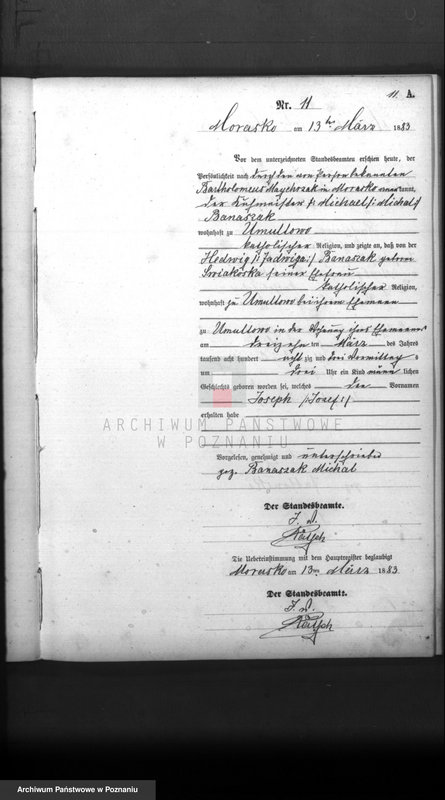 11. A.
Nr. 11
Morasko am 13ten März 1883
Vor dem unterzeichneten Standesbeamten erschien heute, der
Persönlichkeit nach durch den von Person bekannten
Bartholomeus Maychrzak in Morasko anerkannt,
der Michael /: Michal :/
Banaszak
wohnhaft zu Umultowo
katholischer Religion, und zeigte an, daß von der
Hedwig /: Jadwiga :/ Banaszak geborn
seiner Ehefrau
katholischer Religion,
wohnhaft zu Umultowo bei ihrem Ehemann
zu Umultowo in der Wohnung ihres Ehemannes
am dreizehnten März des Jahres
tausend acht hundert achtzig und drei Vormittags
um drei Uhr ein Kind männlichen
Geschlechts geboren worden sei, welches den Vornamen
Joseph /: Jozef :/
erhalten habe
ARCHIWUM PAŃSTWOWE
W POZNANIU
Vorgelesen, genehmigt und unterschrieben
gez. Banaszak Michal
Der Standesbeamte.
J. V.
Die Uebereinstimmung mit dem Hauptregister beglaubigt
Morasko am 13ten März 1883
Der Standesbeamte.
J. V.
Archiwum Państwowe w Poznaniu